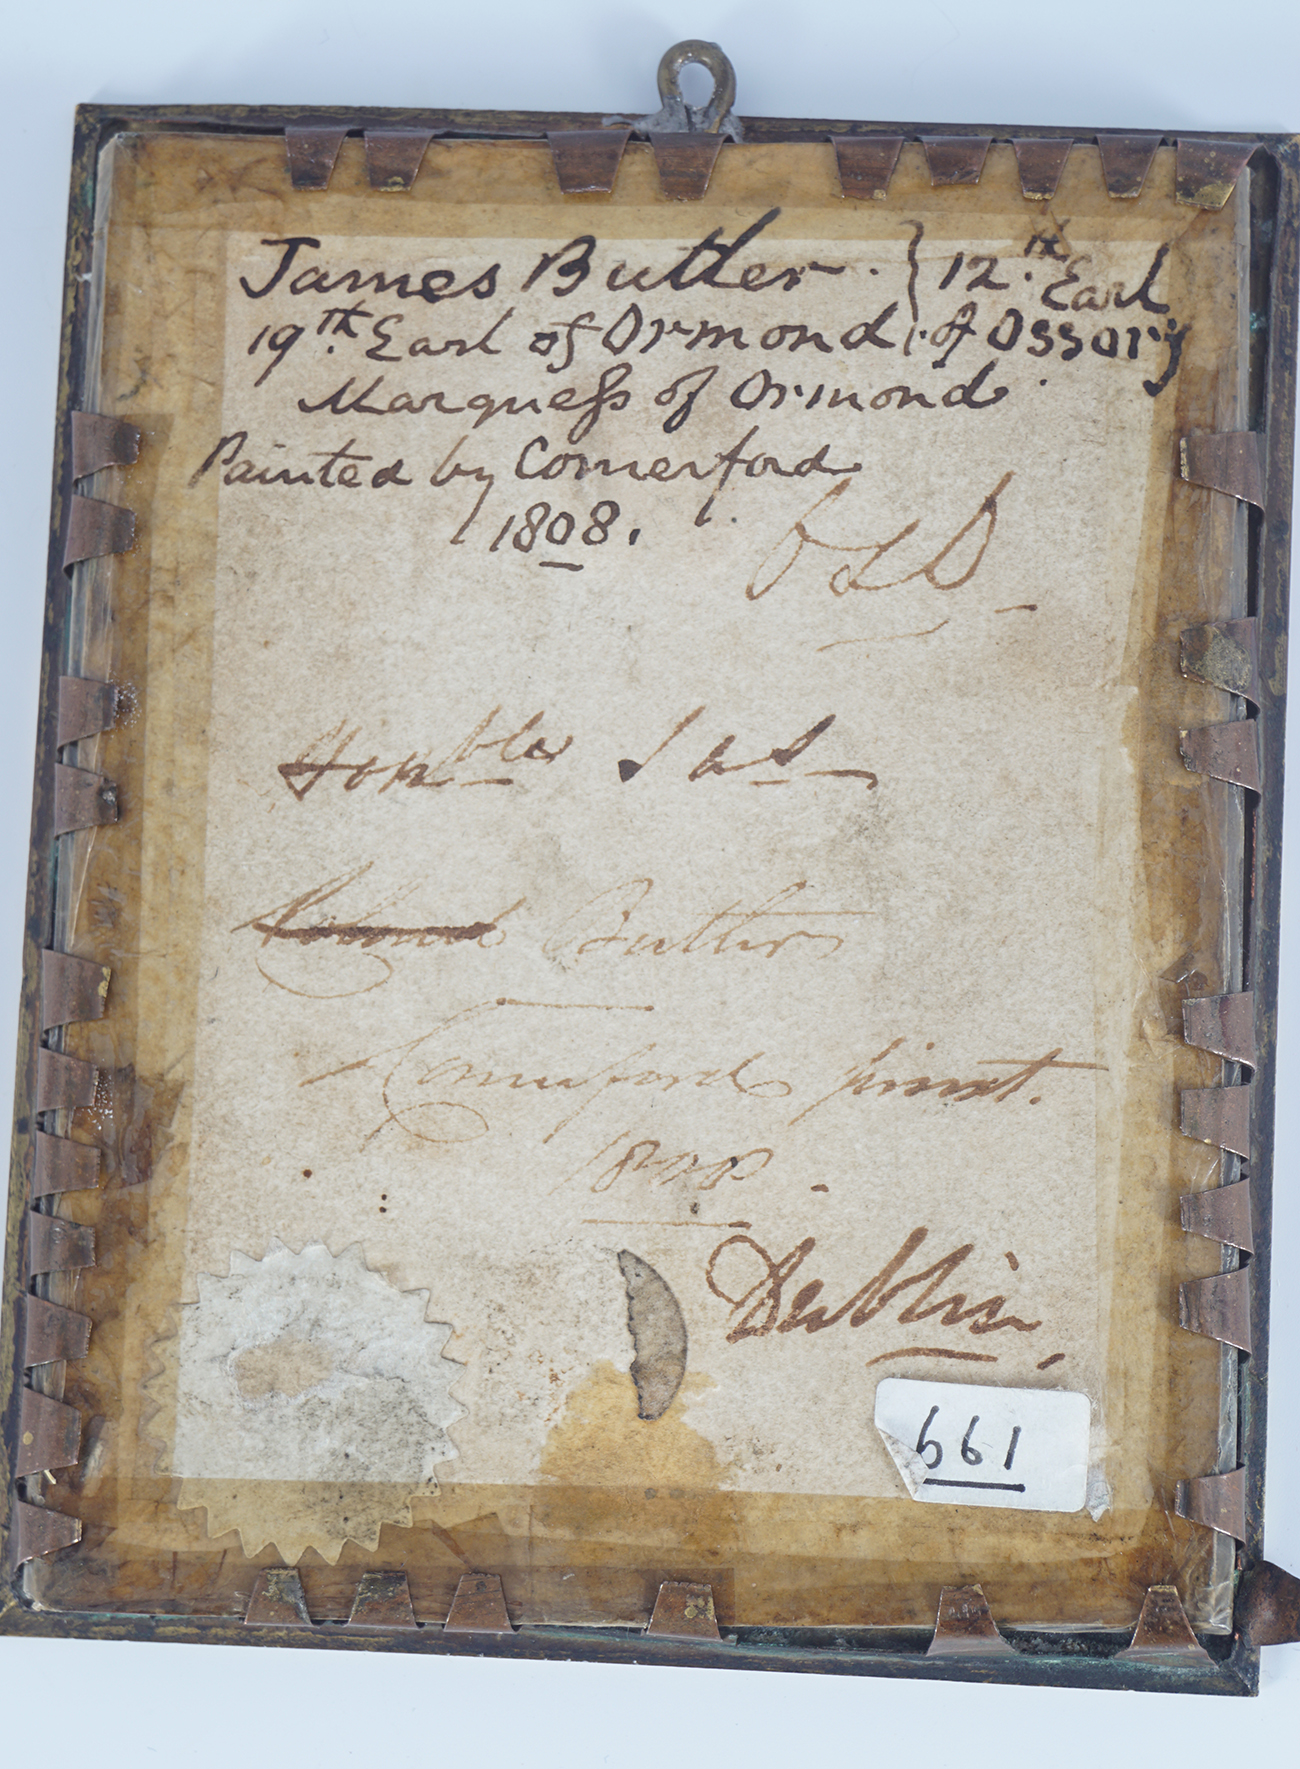 James Butler. } 12.th Earl
19th. Earl of Ormond } of Ossory
Marquess of Ormond.
Painted by Comerford
1808.
Honble Jas
Colonel Butler
Comerford pinxt.
1808.
Dublin.
661